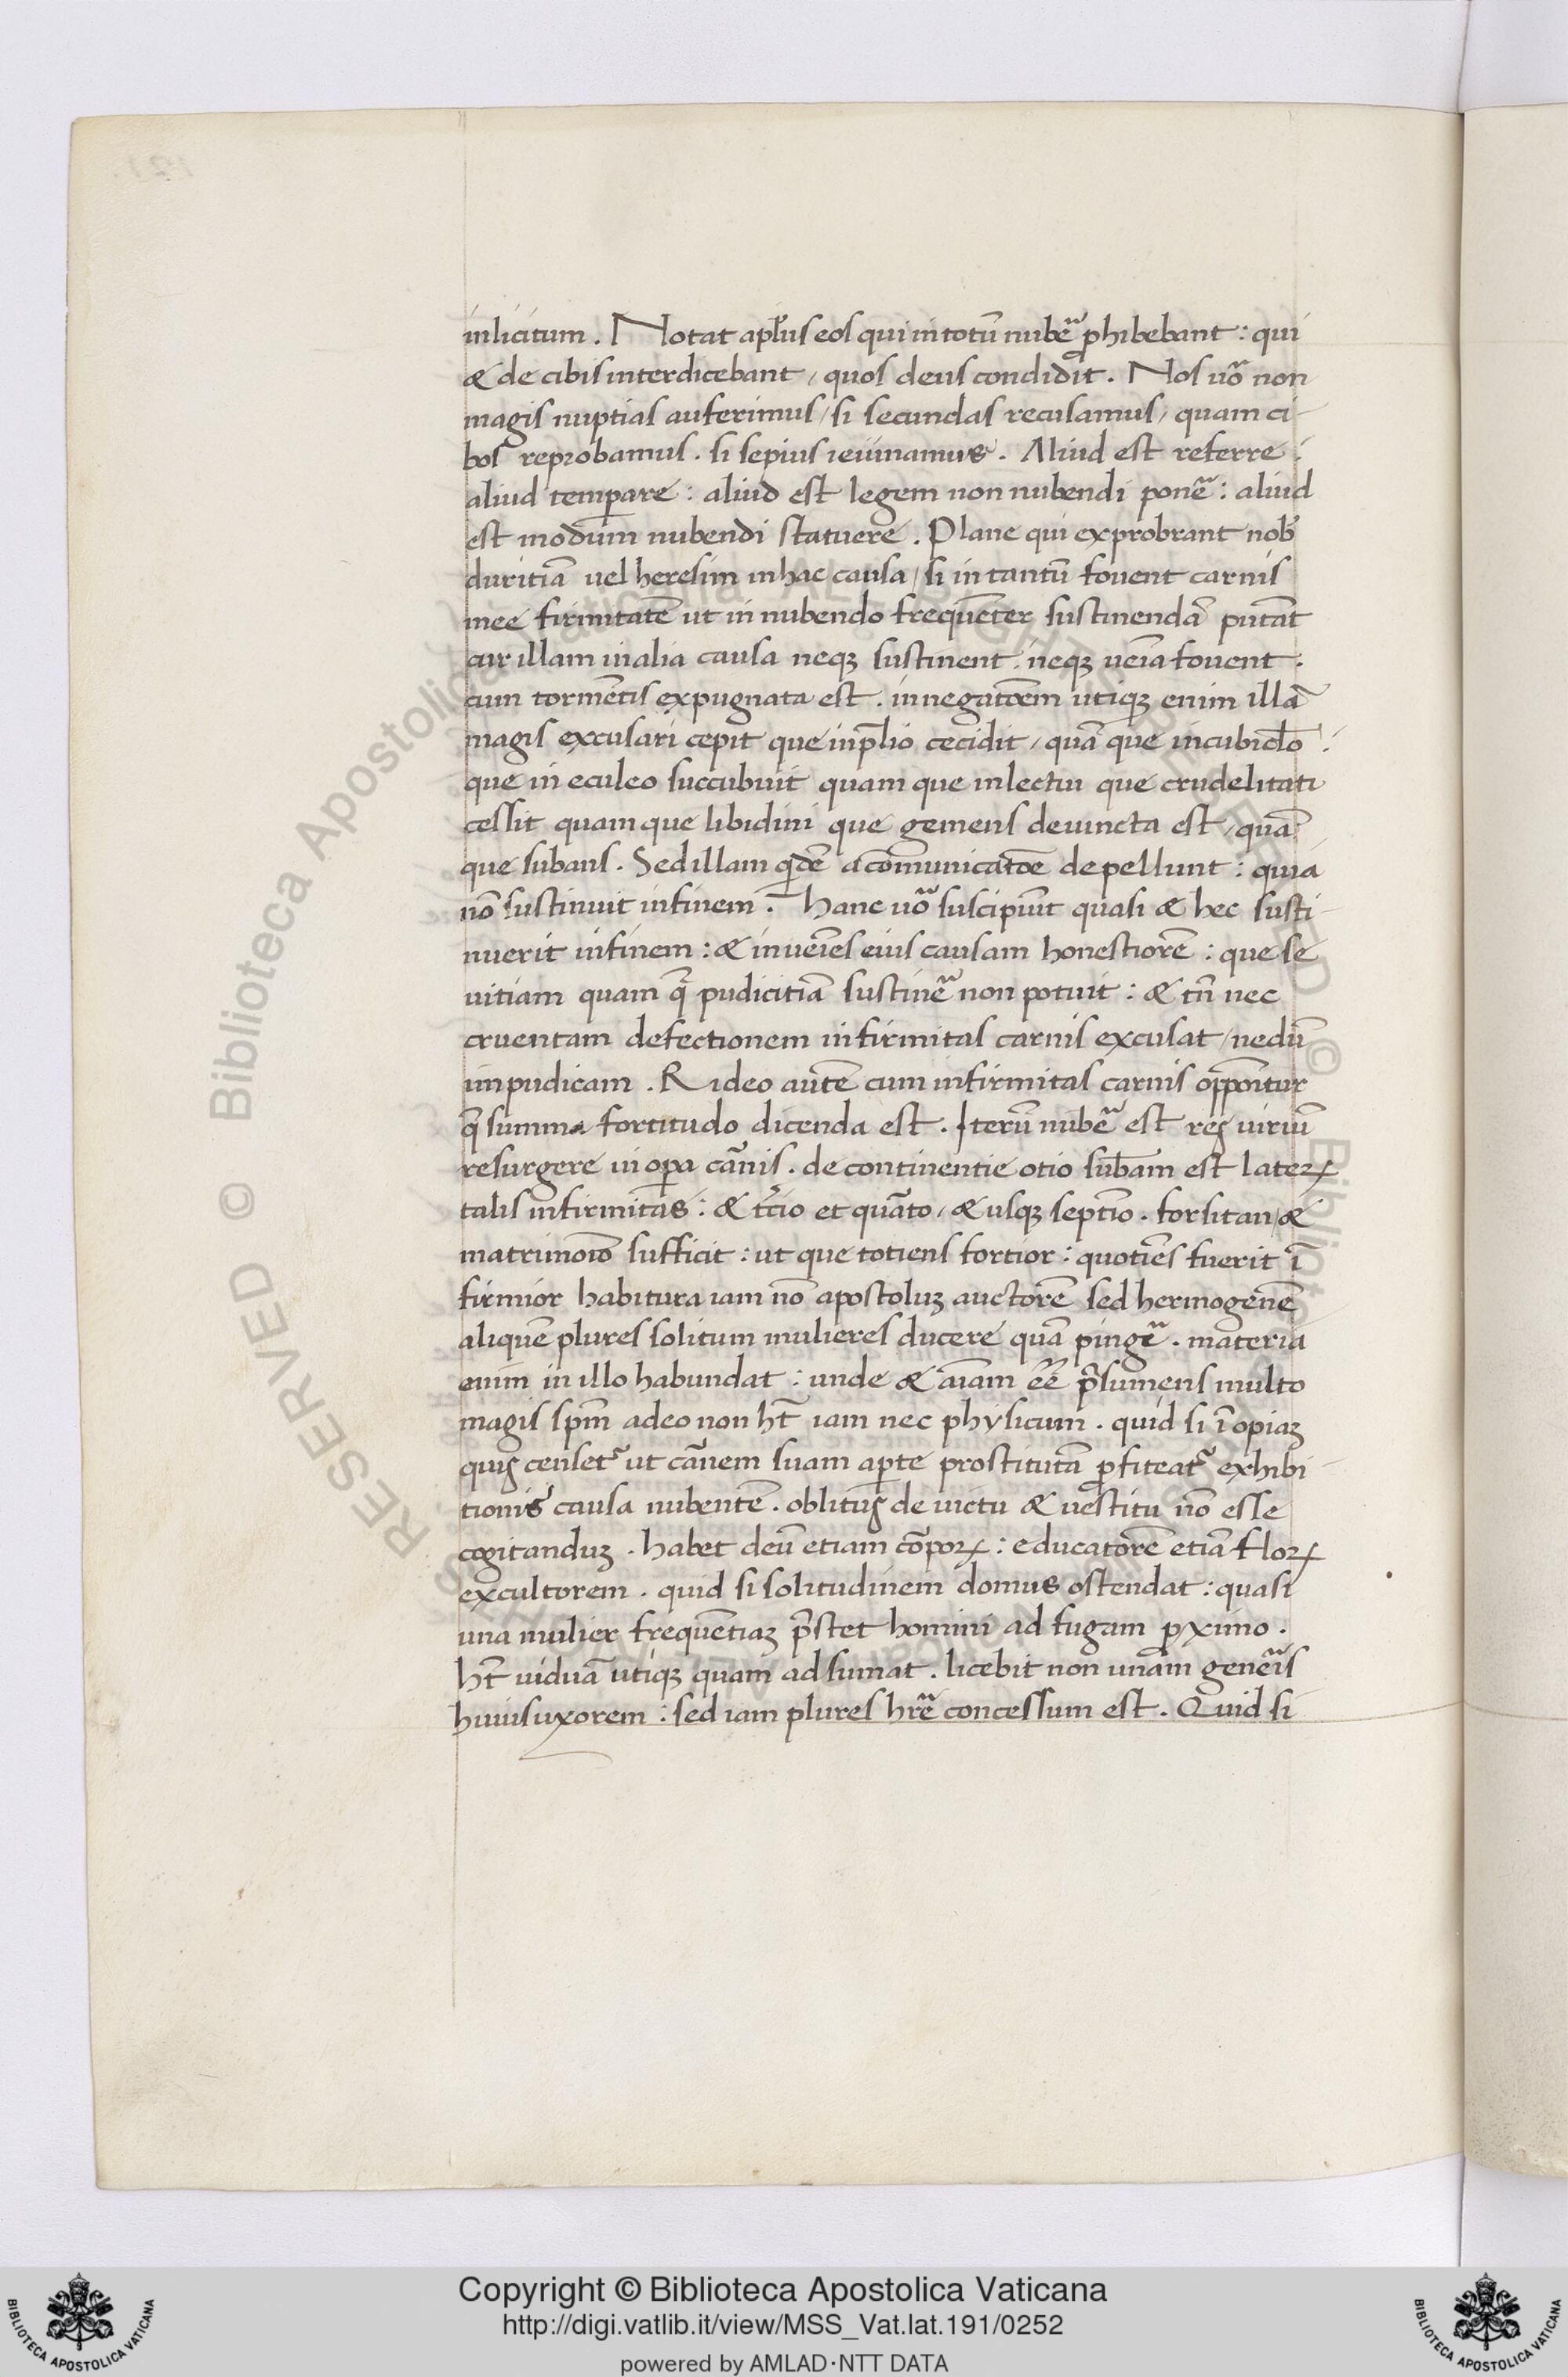 inlicitum. Notat apl̃us eos qui in totũ nubẽ ꝓhibebant: qui
& de cibis interdicebant, quos deus condidit. Nos uõ non
magis nuptias auferimus, si secundas recusamus, quam ci-
bos reprobamus. si sepius ieiunamus. Aliud est referre:
aliud temꝑare: aliud est legem non nubendi ponẽ: aliud
est modum nubendi statuere. Plane qui exprobrant nob̃
duritiã uel heresim in hac causa, si in tantũ fouent carnis
mee firmitatẽ ut in nubendo frequẽter sustinendã putãt
cur illam in alia causa neqꝫ sustinent. neqꝫ ueĩa fouent.
cum tormẽtis expugnata est. in negatõem utiqꝫ enim illã
magis excusari cepit que in p̃lio cecidit, quã que in cubicl̃o:
que in eculeo succubuit quam que in lectu que crudelitati
cessit quam que libidini que gemens deuincta est, quã
que subans. Sed illam qdẽ a cõmunicatõe depellunt: quia
nõ sustinuit in finem. Hanc uõ suscipiũt quasi & hec susti-
nuerit in finem: & inueĩes eius causam honestiorẽ: que se
uitiam quam q̃ pudicitiã sustinẽ non potuit: & tñ nec
cruentam defectionem infirmitas carnis excusat, nedũ
impudicam. Rideo autẽ cum infirmitas carnis opp̃oĩtur
q̃ summa fortitudo dicenda est. Iterũ nubẽ est res uiriũ
resurgere in oꝑa cãnis. de continentie otio sub̃am est lateꝝ
talis infirmitas: & tc̃io et quãto, & usqꝫ septĩo. forsitan, &
matrimoĩo sufficit: ut que totiens fortior: quotiẽs fuerit ĩ
firmior habitura iam nõ apostoluꝫ auctorẽ sed hermogenẽ
aliquẽ plures solitum mulieres ducere quã pingẽ. materia
enim in illo habundat: unde & aĩam eẽ p̃sumens multo
magis spm̃ adeo non ht̃ iam nec physicum. quid si ĩopiaꝫ
quis censet̃ ut cãnem suam aꝑte prostitutã ꝓfiteat̃ exhibi-
tionis causa nubentẽ. oblitus de uictu & uestitu nõ esse
cogitanduꝫ. habet deũ etiam cõpoꝝ: educatorẽ etiã floꝝ
excultorem. quid si solitudinem domus ostendat: quasi
una mulier frequẽtiaꝫ p̃stet homini ad fugam ꝓximo.
ht̃ uiduã utiqꝫ quam adsumat. licebit non unam genẽis
huius uxorem: sed iam plures hr̃e concessum est. Quid si
© Biblioteca Apostolica Vaticana ALL RIGHTS RESERVED
Copyright © Biblioteca Apostolica Vaticana
http://digi.vatlib.it/view/MSS_Vat.lat.191/0252
powered by AMLAD·NTT DATA
BIBLIOTECA APOSTOLICA VATICANA
BIBLIOTECA APOSTOLICA VATICANA